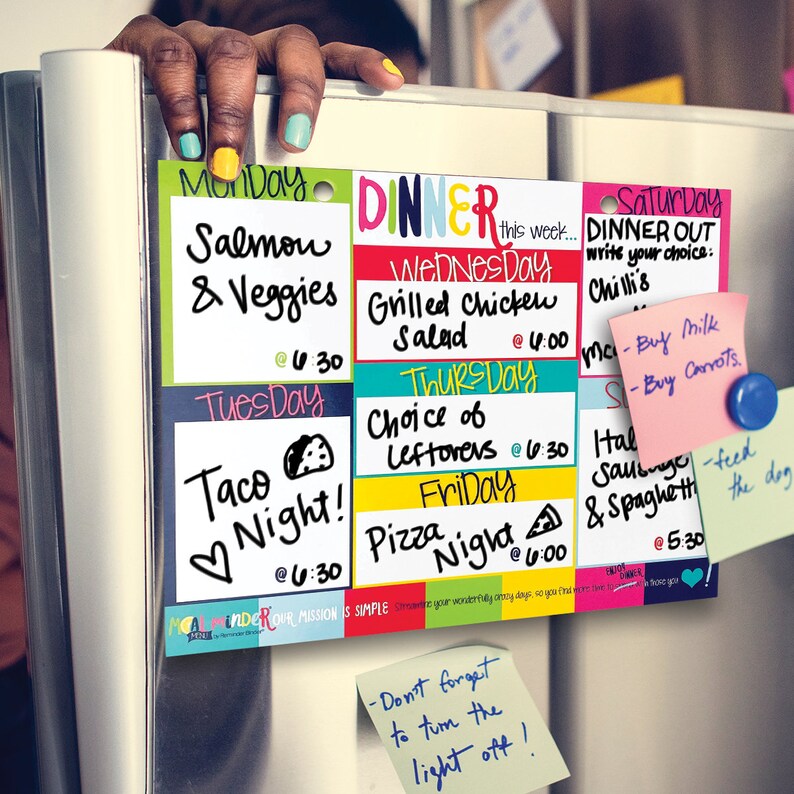 MONDAY
Salmon
& Veggies
@ 6:30
TUESDAY
Taco
Night!
@ 6:30
DINNER
this week...
WEDNESDAY
Grilled Chicken
Salad @ 6:00
THURSDAY
Choice of
Leftovers @ 6:30
FRIDAY
Pizza
Night @ 6:00
SATURDAY
DINNER OUT
write your choice:
Chilli's
S
& Spaghetti
@ 5:30
- Buy Milk
- Buy Carrots.
- feed
the dog
MealmindeR
MENU by Reminder Binder®
OUR MISSION IS SIMPLE
Streamline your wonderfully crazy days, so you find more time to
ENJOY
DINNER
with those you
!
- Don't forget
to turn the
light off!